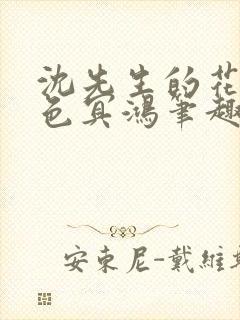 沈先生的花
色冥鸿笔趣
安東尼-戴維斯